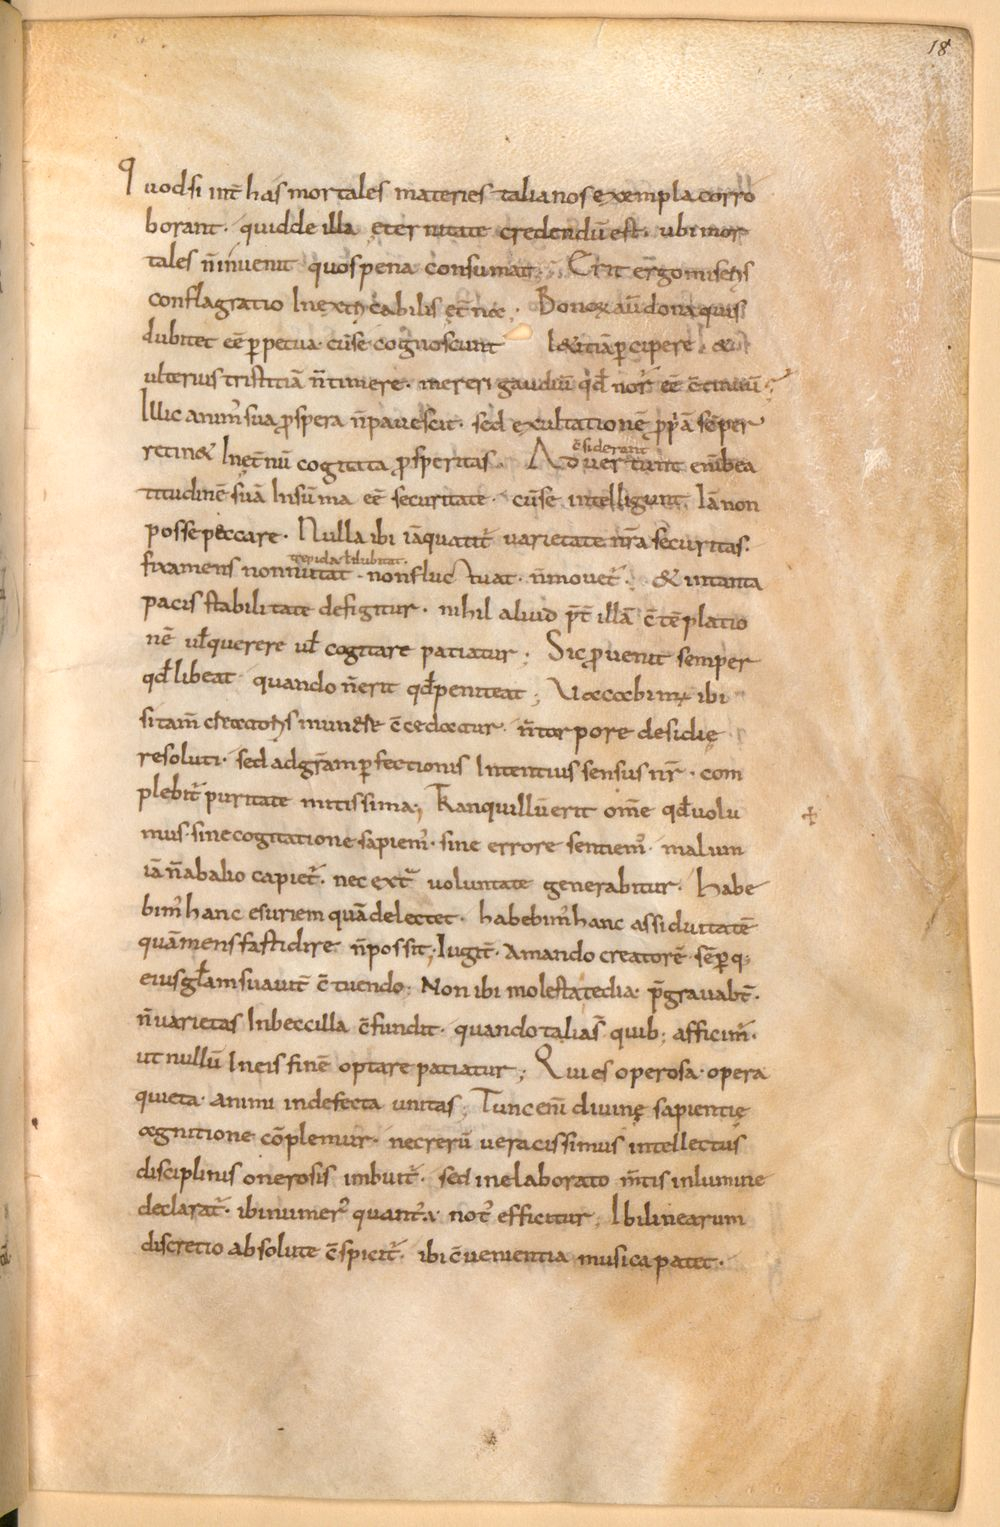 18
Quodsi int̄ has mortales materies talia nos exempla corro
borant· quid de illa ęternitate credendū est· ubi mor
tales n̄ invenit quos pena consumat· Erit erḡ omiseris
conflagratio Inextricabilis ęt̄na· Bonoꝝ aū dona quis
dubitet eē ꝑpetua· cū se cognoscunt lætitiā ꝑcipere· &
ulterius tristitiā n̄ timere· mereri gaudiū qđ nor̄ eē c̄tinuū
Illic anim̾ sua ꝓspera n̄ pavescit· sed exultationē ꝓpriā sēper
retin& Inęt̄nū cogitata ꝓsperitas· Advertunt enī bea
c̄siderant
titudinē suā Insūma eē securitate· cū se intelligunt· Iā non
posse peccare· Nulla ibi iā quatit̾ varietate nr̄a securitas·
fixa mens non nutat· non fluctuat· n̄ movet̾· & in tanta
trepidat ł dubitat·
pacis stabilitate defigitur· nihil aliud p̄t illā c̄tēplatio
nē uł querere uł cogitare patiatur; Sic ꝓvenit semper
qđ libeat quando n̄ erit qđ peniteat; Vacabimꝰ ibi
si tam̄ clamatoris munere c̄cedatur· n̄ torpore desidię
resoluti· sed ad gr̄am ꝑfectionis Intentius sensus nr̄· com
plebit̾ puritate mitissima; Tranquillū erit om̄e qđ volu
mus· sine cogitatione sapiem̾· sine errore sentiem̾· malum
iā n̄ ab alio capiet̾· nec ext̾ voluntate generabitur· habe
bim̾ hanc esuriem quā delectet· habebim̾ hanc assiduitatē
quā mens fastidire n̄ possit; Iugit̄· amando creatorē· sēꝑ q;
eius gł̄am suavit̄ c̄tuendo; Non ibi molesta tedia p̄gravabt̄·
n̄ varietas Inbeccilla c̄fundit· quando talia s̄ quib; afficim̾·
ut nullū Ineis finē optare patiatur; Quies operosa· opera
quieta· animi indefecta unitas; Tunc enī divinę sapientię
agnitione cōplemur· nec rerū veracissimus intellectus
disciplinis onerosis imbuit̾· sed inelaborato m̄tis inlumine
declarat̾· ibi numer̾ quant̾ a not̾ efficitur; Ibi linearum
discretio absolute c̄spicit̾· ibi c̄venientia musica patet·